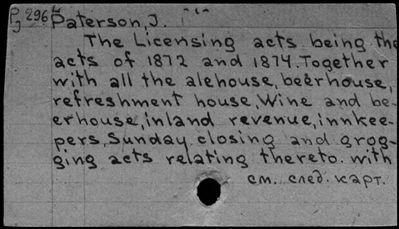 P/J 296 Paterson, J.
The Licensing acts being the
acts of 1872 and 1874. Together
with all the alehouse, beerhouse,
refreshment house, Wine and be-
erhouse, inland revenue, innkee-
pers, Sunday closing and grog-
ging acts relating thereto. with
см. след. карт.